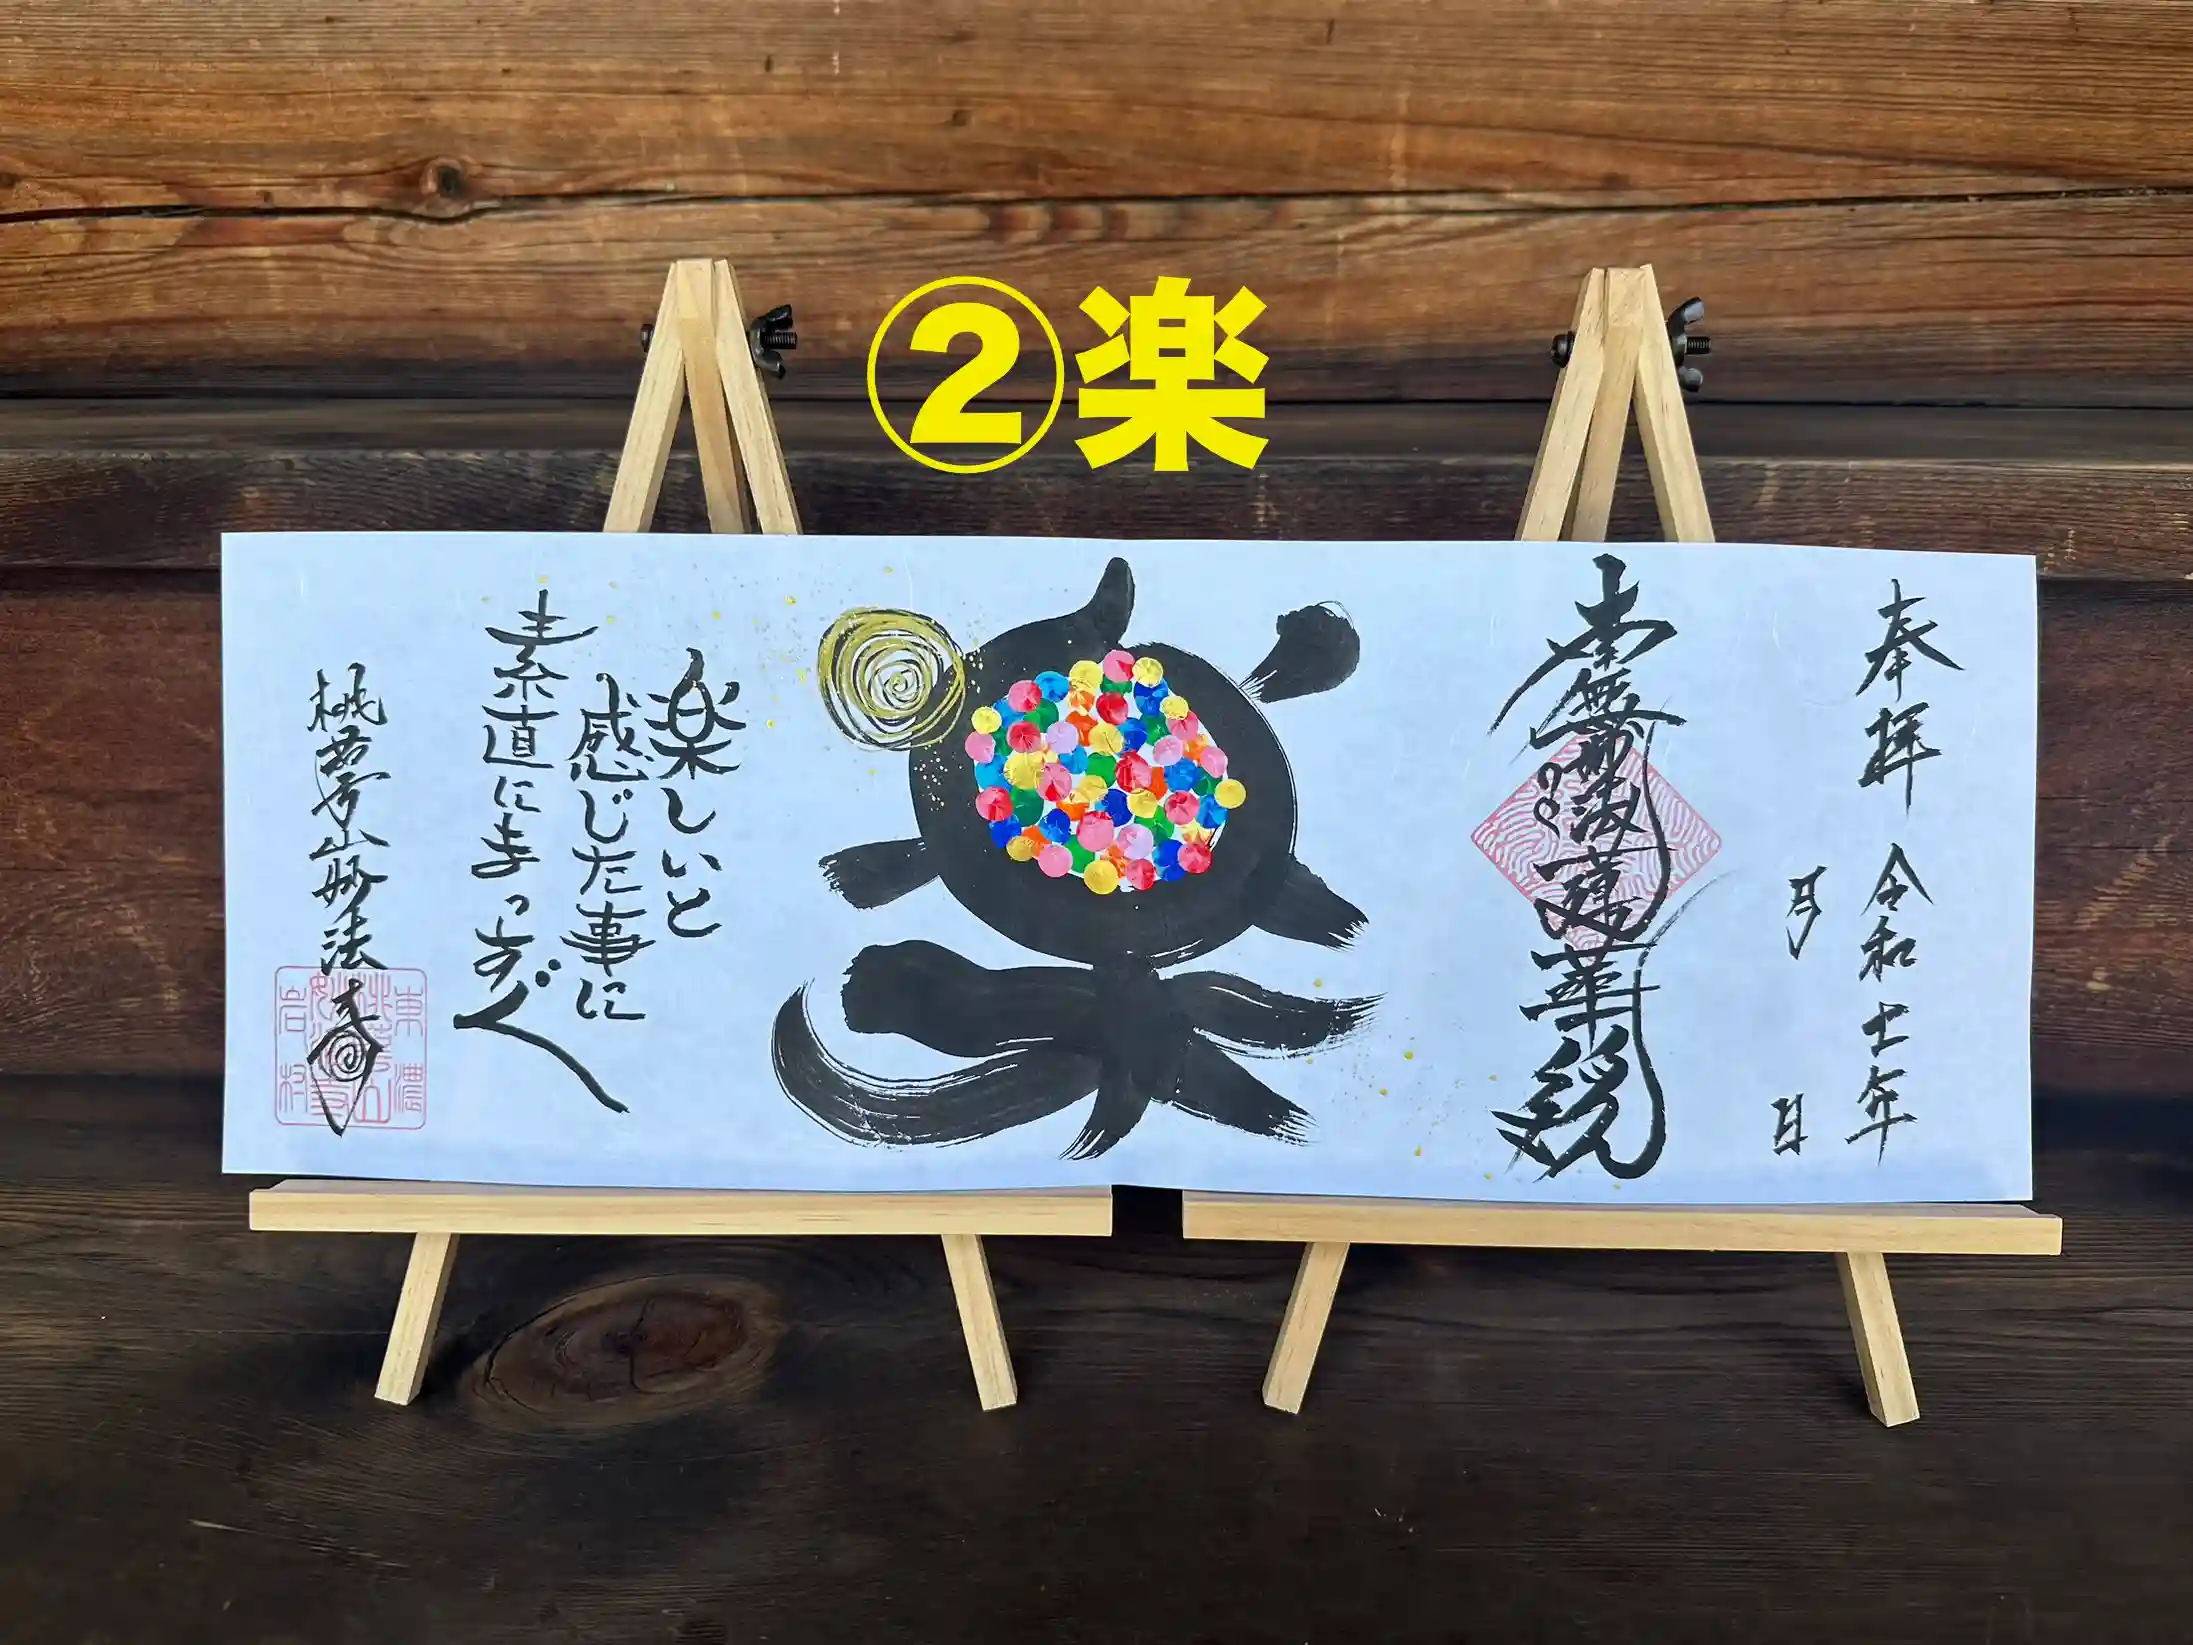 ②楽
奉拝 令和七年
月 日
南無妙法蓮華経
楽
楽しいと
感じた事に
素直にまっすぐ
桃夢山妙法寺